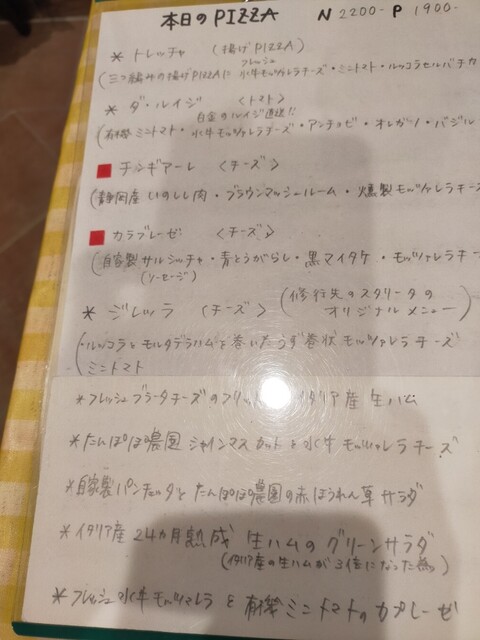 本日のPIZZA N 2200- P 1900-
* トレッチャ (揚げPIZZA)
フレッシュ
(三つ編みの揚げPIZZAに 水牛モッツァレラチーズ・ミニトマト・ルッコラセルバチカ
* ダ・ルイジ 〈トマト〉
白金のルイジ直送!!
(有機ミニトマト・水牛モッツァレラチーズ・アンチョビ・オレガノ・バジル
チンギアーレ 〈チーズ〉
(静岡産いのしし肉・ブラウンマッシュルーム・燻製モッツァレラチーズ
カラブレーゼ 〈チーズ〉
(自家製サルシッチャ・青とうがらし・黒マイタケ・モッツァレラチー
(ソーセージ)
* ジレッラ 〈チーズ〉 (修行先のスタリータの
オリジナルメニュー)
(・ルッコラとモルタデラハムを巻いたうず巻状モッツァレラチーズ
ミニトマト
*フレッシュブラータチーズのフリット イタリア産生ハム
*たんぽぽ農園 シャインマスカットと水牛モッツァレラチーズ
*自家製パンチェッタとたんぽぽ農園の赤ほうれん草サラダ
*イタリア産24カ月熟成 生ハムのグリーンサラダ
(イタリア産の生ハムが3倍になった為)
*フレッシュ水牛モッツァレラと有機ミニトマトのカプレーゼ